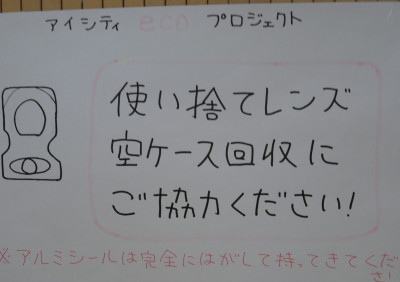 アイシティ eco プロジェクト
使い捨てレンズ
空ケース回収に
ご協力ください!
※アルミシールは完全にはがして持ってきてくだ
さい